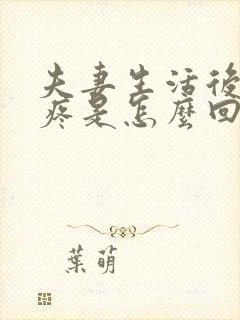 夫妻生活後
疼是怎麼回
葉萌